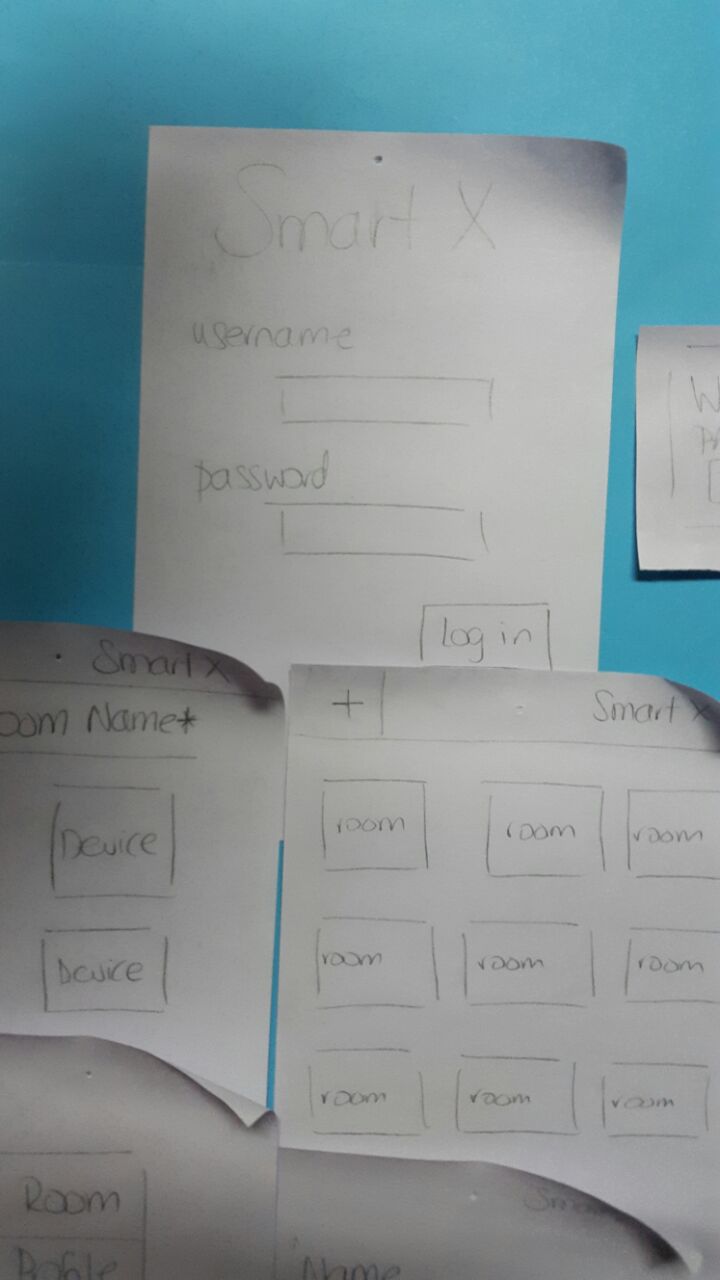 Smart X
username
password
Log in
Smart X
oom Name*
Device
Device
+ Smart X
room room room
room room room
room room room
Room
Profile
Name
W